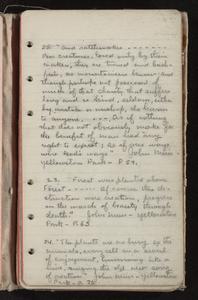 22. "and rattlesnakes - - - - - -
Poor creatures, loved only by their
maker, they are timid and bash-
ful, as mountaineers know; and
though perhaps not possessed of
much of that charity that suffers
long and is kind, seldom, either
by mistake or mishap, do harm
to anyone. - - - As if nothing
that does not obviously make for
the benefit of man had any
right to exist; As if our ways
were God's ways" John Muir -
Yellowstone Park - P 57.
23. "Forest was planted above
Forest - - - - - Of course this de-
struction was creation, progress
in the march of beauty through
death." John Muir - Yellowstone
Park - P. 63
24. "The plants are as busy as the
animals, every cell in a swirl
of enjoyment, humming like a
hive, singing the old new song
of creation." John Muir - Yellowstone
Park - P.